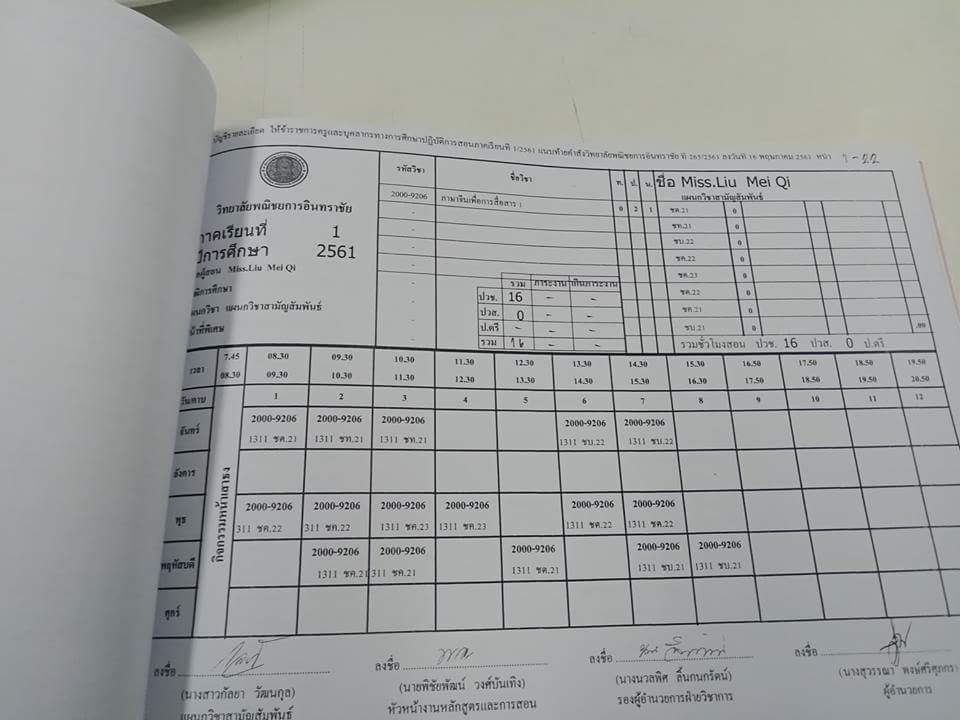 บัญชีรายละเอียด ให้ข้าราชการครูและบุคลากรทางการศึกษาปฏิบัติการสอนภาคเรียนที่ 1/2561 แนบท้ายคำสั่งวิทยาลัยพณิชยการอินทราชัย ที่ 265/2561 ลงวันที่ 16 พฤษภาคม 2561 หน้า 1-22
วิทยาลัยพณิชยการอินทราชัย
ภาคเรียนที่ 1
ปีการศึกษา 2561
ผู้สอน Miss.Liu Mei Qi
วุฒิการศึกษา
แผนกวิชา แผนกวิชาสามัญสัมพันธ์
หน้าที่พิเศษ
รหัสวิชา ชื่อวิชา ท. ป. น.
2000-9206 ภาษาจีนเพื่อการสื่อสาร 1 0 2 1
ชื่อ Miss.Liu Mei Qi
แผนกวิชาสามัญสัมพันธ์
ชค.21 0
ชท.21 0
ชบ.22 0
ชค.22 0
ชค.23 0
ชค.22 0
ชค.21 0
ชบ.21 0 .00
รวมชั่วโมงสอน ปวช. 16 ปวส. 0 ป.ตรี
รวม ภาระงาน เกินภาระงาน
ปวช. 16 - -
ปวส. 0 - -
ป.ตรี - - -
รวม 16 - -
เวลา 7.45 08.30 09.30 10.30 11.30 12.30 13.30 14.30 15.30 16.50 17.50 18.50 19.50
08.30 09.30 10.30 11.30 12.30 13.30 14.30 15.30 16.30 17.50 18.50 19.50 20.50
วัน/คาบ 1 2 3 4 5 6 7 8 9 10 11 12
กิจกรรมหน้าเสาธง
จันทร์ 2000-9206 2000-9206 2000-9206 2000-9206 2000-9206
1311 ชค.21 1311 ชท.21 1311 ชท.21 1311 ชบ.22 1311 ชบ.22
อังคาร
พุธ 2000-9206 2000-9206 2000-9206 2000-9206 2000-9206 2000-9206
311 ชค.22 311 ชค.22 1311 ชค.23 1311 ชค.23 1311 ชค.22 1311 ชค.22
พฤหัสบดี 2000-9206 2000-9206 2000-9206 2000-9206 2000-9206
1311 ชค.21 311 ชค.21 1311 ชค.21 1311 ชบ.21 1311 ชบ.21
ศุกร์
ลงชื่อ ลงชื่อ ลงชื่อ ลงชื่อ
(นางสาวกัลยา วัฒนกุล) (นายพิชัยพัฒน์ วงศ์บันเทิง) (นางนวลพิศ ลิ้นกนกรัตน์) (นางสุวรรณา พงษ์ศรีศุภกร)
แผนกวิชาสามัญสัมพันธ์ หัวหน้างานหลักสูตรและการสอน รองผู้อำนวยการฝ่ายวิชาการ ผู้อำนวยการ